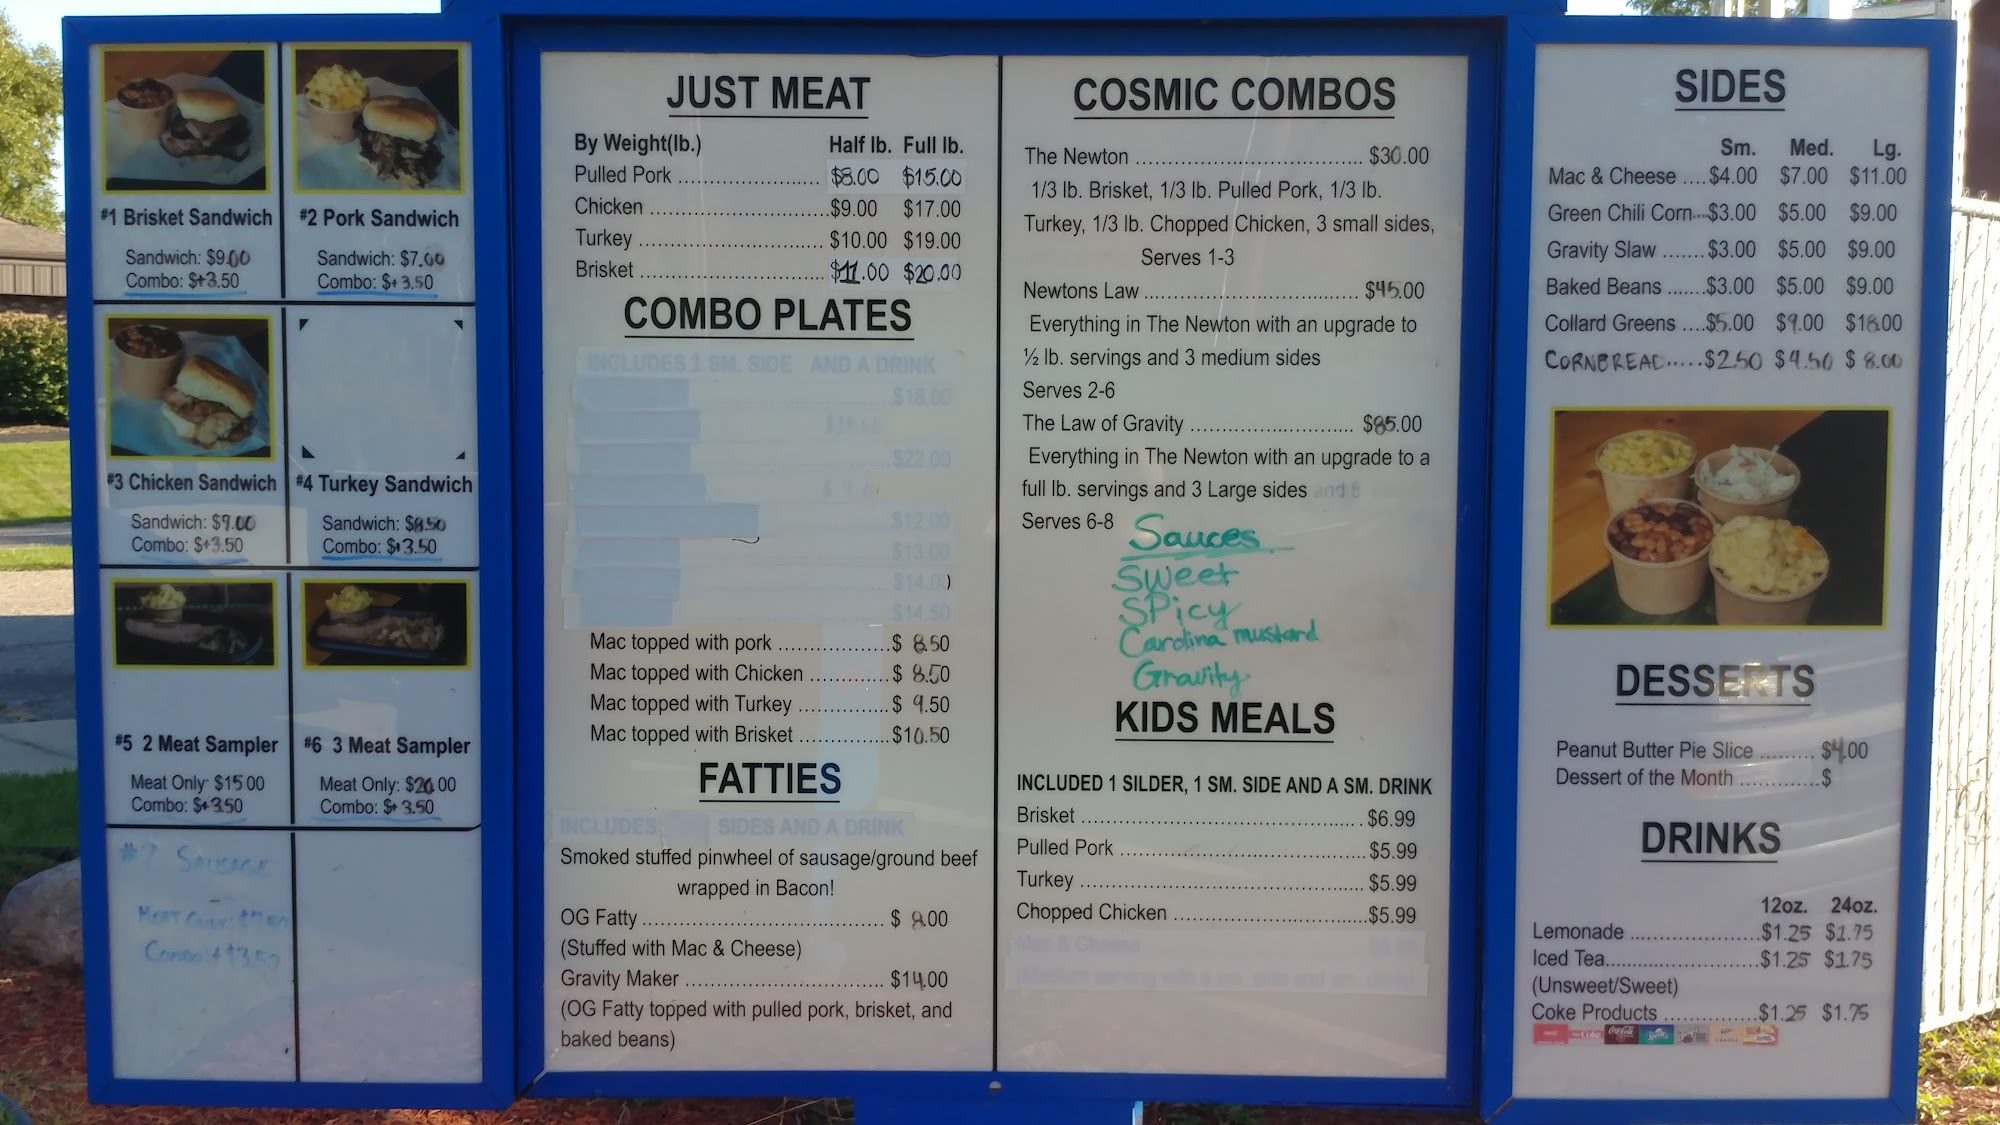 #1 Brisket Sandwich
Sandwich: $9.00
Combo: $+3.50
#2 Pork Sandwich
Sandwich: $7.00
Combo: $+3.50
#3 Chicken Sandwich
Sandwich: $9.00
Combo: $+3.50
#4 Turkey Sandwich
Sandwich: $8.50
Combo: $+3.50
#5 2 Meat Sampler
Meat Only: $15.00
Combo: $+3.50
#6 3 Meat Sampler
Meat Only: $20.00
Combo: $+3.50
#7 Sausage
Meat Only: $7.50
Combo +$3.50
JUST MEAT
By Weight(lb.) Half lb. Full lb.
Pulled Pork ........................ $8.00 $15.00
Chicken ................................$9.00 $17.00
Turkey .................................. $10.00 $19.00
Brisket .................................. $11.00 $20.00
COMBO PLATES
INCLUDES 1 SM. SIDE AND A DRINK
$18.00
$22.00
$12.00
$13.00
$14.00
$14.50
Mac topped with pork ..................$ 8.50
Mac topped with Chicken .............$ 8.50
Mac topped with Turkey ...............$ 9.50
Mac topped with Brisket ...............$10.50
FATTIES
INCLUDES SIDES AND A DRINK
Smoked stuffed pinwheel of sausage/ground beef
wrapped in Bacon!
OG Fatty ........................................... $ 8.00
(Stuffed with Mac & Cheese)
Gravity Maker ................................... $14.00
(OG Fatty topped with pulled pork, brisket, and
baked beans)
COSMIC COMBOS
The Newton ....................................... $30.00
1/3 lb. Brisket, 1/3 lb. Pulled Pork, 1/3 lb.
Turkey, 1/3 lb. Chopped Chicken, 3 small sides,
Serves 1-3
Newtons Law ..................................... $45.00
Everything in The Newton with an upgrade to
½ lb. servings and 3 medium sides
Serves 2-6
The Law of Gravity ............................ $85.00
Everything in The Newton with an upgrade to a
full lb. servings and 3 Large sides
Serves 6-8
Sauces
Sweet
Spicy
Carolina mustard
Gravity
KIDS MEALS
INCLUDED 1 SILDER, 1 SM. SIDE AND A SM. DRINK
Brisket ................................................. $6.99
Pulled Pork ...........................................$5.99
Turkey .................................................. $5.99
Chopped Chicken ..................................$5.99
Mac & Cheese
SIDES
Sm. Med. Lg.
Mac & Cheese ....$4.00 $7.00 $11.00
Green Chili Corn....$3.00 $5.00 $9.00
Gravity Slaw .......$3.00 $5.00 $9.00
Baked Beans .......$3.00 $5.00 $9.00
Collard Greens ....$5.00 $9.00 $18.00
CORNBREAD.....$2.50 $4.50 $8.00
DESSERTS
Peanut Butter Pie Slice ......... $4.00
Dessert of the Month .............$
DRINKS
12oz. 24oz.
Lemonade ........................$1.25 $1.75
Iced Tea............................$1.25 $1.75
(Unsweet/Sweet)
Coke Products .................$1.25 $1.75